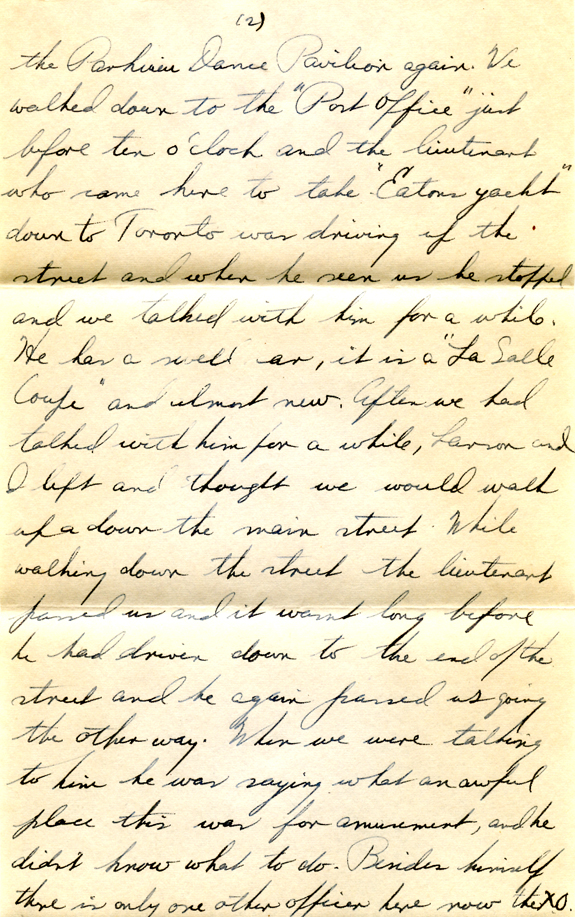 (2)
the Parkview Dance Pavilion again. We
walked down to the "Post Office" just
before ten o'clock and the lieutenant
who came here to take "Eatons yacht"
down to Toronto was driving up the
street and when he seen us he stopped
and we talked with him for a while.
He has a swell car, it is a "La Salle
Coupe" and almost new. After we had
talked with him for a while, Larson and
I left and thought we would walk
up a down the main street. While
walking down the street the lieutenant
passed us and it wasnt long before
he had driven down to the end of the
street and he again passed us going
the other way. When we were talking
to him he was saying what an awful
place this was for amusement, and he
didn't know what to do. Besides himself
there is only one other officer here now the XO.